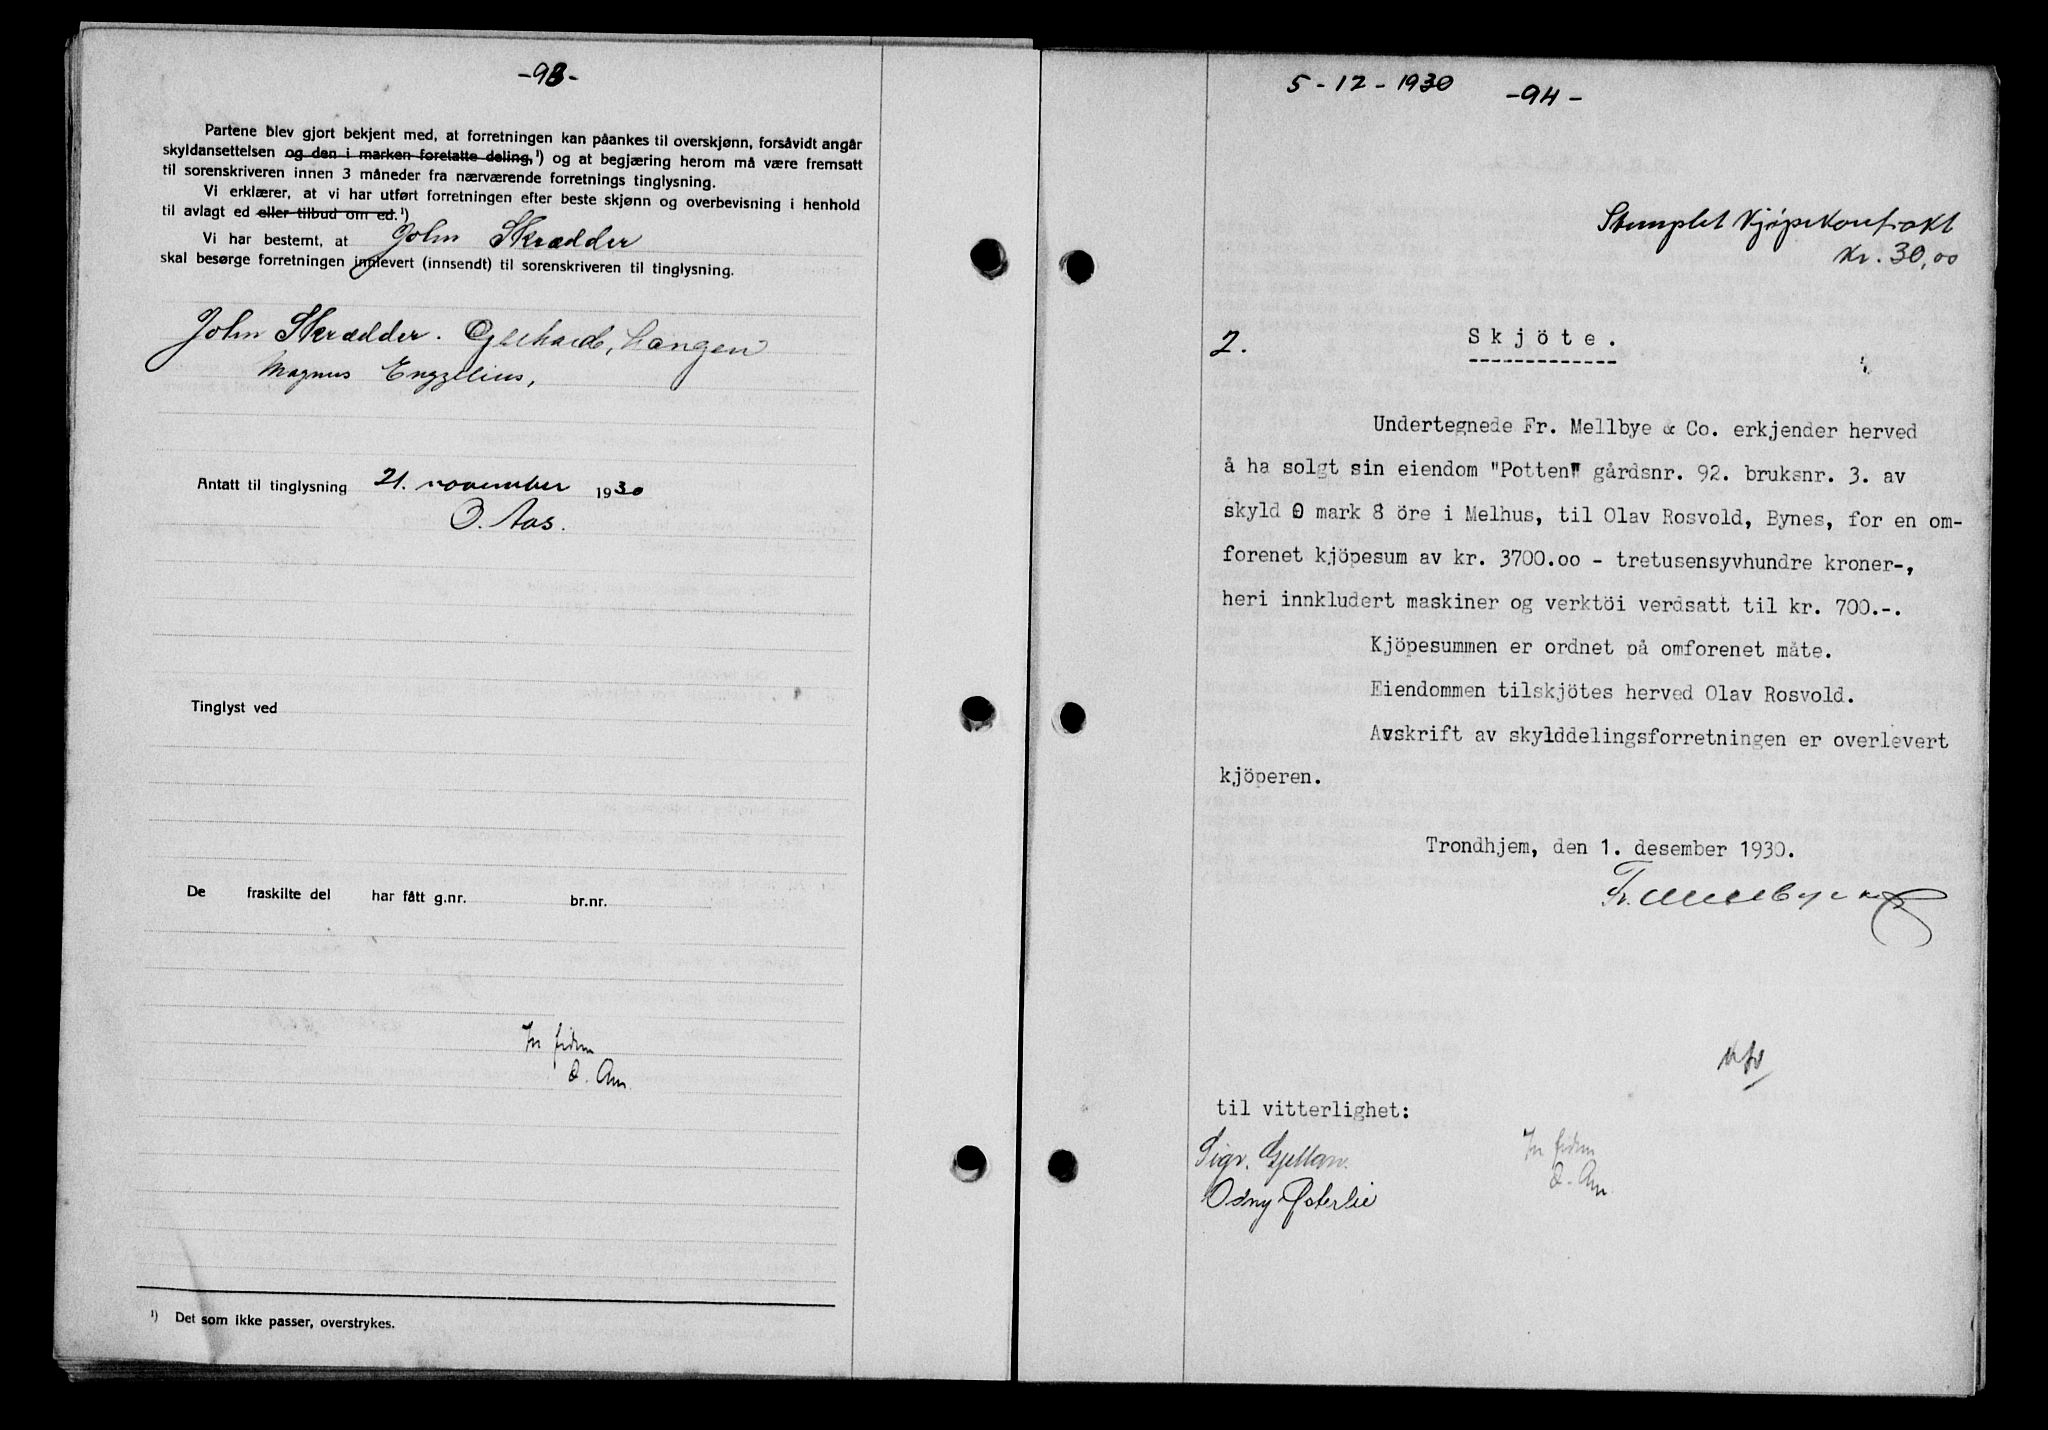 -93-
Partene blev gjort bekjent med, at forretningen kan påankes til overskjønn, forsåvidt angår
skyldansettelsen og den i marken foretatte deling,¹) og at begjæring herom må være fremsatt
til sorenskriveren innen 3 måneder fra nærværende forretnings tinglysning.
Vi erklærer, at vi har utført forretningen efter beste skjønn og overbevisning i henhold
til avlagt ed eller tilbud om ed.¹)
Vi har bestemt, at John Skrædder
skal besørge forretningen innlevert (innsendt) til sorenskriveren til tinglysning.
John Skrædder. Gerhard Langen
Magnus Enggelius,
Antatt til tinglysning 21. november 1930
O. Aas.
Tinglyst ved
De fraskilte del har fått g.nr. br.nr.
In fidem
¹) Det som ikke passer, overstrykes.
5-12-1930 -94-
Stemplet kjøpekontrakt
kr. 30,00
2. Skjöte.
Undertegnede Fr. Mellbye & Co. erkjender herved
å ha solgt sin eiendom "Potten" gårdsnr. 92. bruksnr. 3. av
skyld 0 mark 8 öre i Melhus, til Olav Rosvold, Bynes, for en om-
forenet kjöpesum av kr. 3700.00 - tretusensyvhundre kroner-,
heri innkludert maskiner og verktöi verdsatt til kr. 700.-.
Kjöpesummen er ordnet på omforenet måte.
Eiendommen tilskjötes herved Olav Rosvold.
Avskrift av skylddelingsforretningen er overlevert
kjöperen.
Trondhjem, den 1. desember 1930.
Fr. Mellbye & Co
til vitterlighet:
Sigr. Gjellan.
Odny Østerlie
In fidem